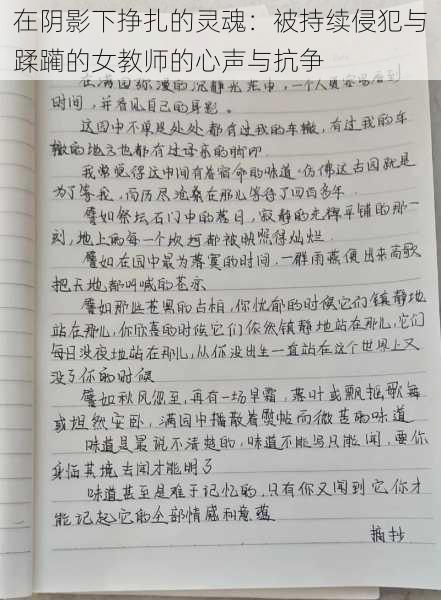 在阴影下挣扎的灵魂：被持续侵犯与
蹂躏的女教师的心声与抗争
在满园弥漫的沉静光芒中，一个人更容易看到
时间，并看见自己的身影。
这园中不单是处处都有过我的车辙，有过我的车
辙的地方也都有过母亲的脚印
我常觉得这中间有着宿命的味道 仿佛这古园就是
为了等我，而历尽沧桑在那儿等待了四百多年
譬如祭坛石门中的落日，寂静的光辉平铺的那一
刻，地上的每一个坎坷都被映照得灿烂
譬如在园中最为落寞的时间，一群雨燕便出来高歌
把天地都叫喊的苍凉
譬如那些苍黑的古柏，你忧郁的时候它们镇静地
站在那儿，你欣喜的时候它们依然镇静地站在那儿，它们
每日没夜地站在那儿，从你没出生一直站在这个世界上又
没了你的时候
譬如秋风忽至，再有一场早霜，落叶或飘摇歌舞
或坦然安卧，满园中播散着熨帖而微苦的味道
味道是最说不清楚的，味道不能写只能闻，要你
身临其境去闻才能明了
味道甚至是难于记忆的，只有你又闻到它你才
能记起它的全部情感和意蕴
摘抄